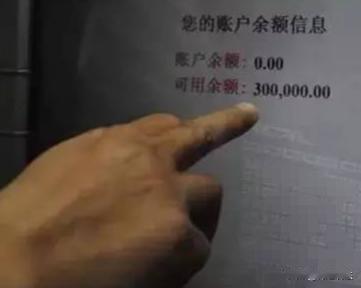 您的账户余额信息
账户余额：0.00
可用余额：300,000.00